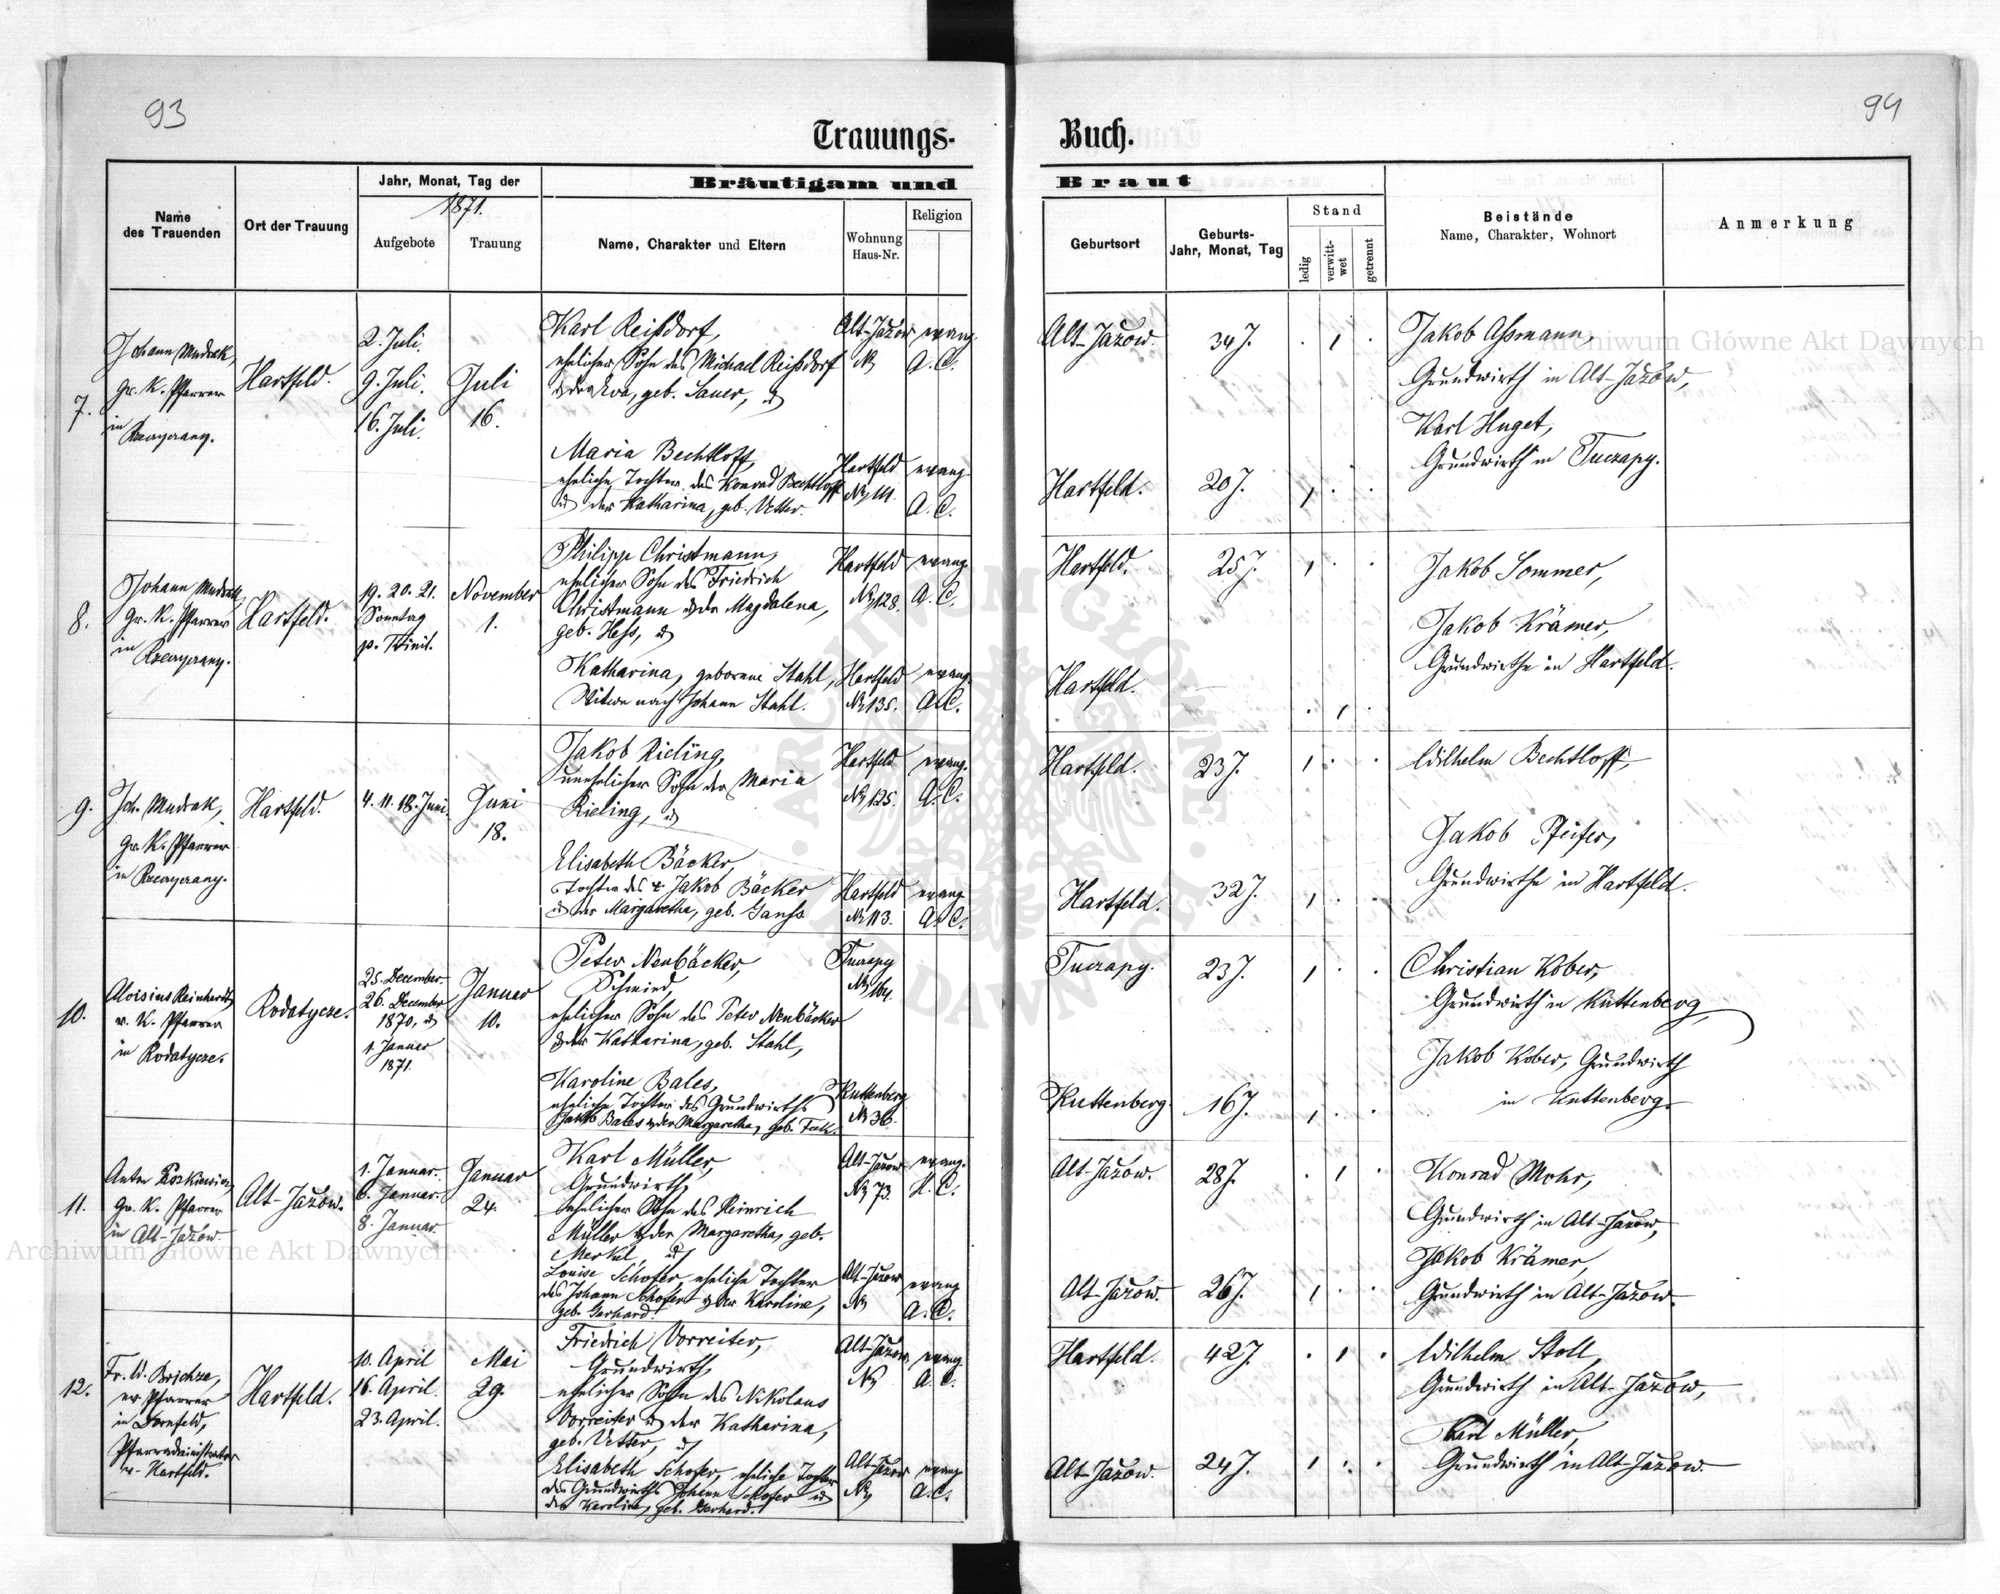 93
94
Trauungs-
Buch.
Jahr, Monat, Tag der
1871.
Bräutigam und
Braut
Name
des Trauenden
Ort der Trauung
Aufgebote
Trauung
Name, Charakter und Eltern
Wohnung
Haus-Nr.
Religion
Geburtsort
Geburts-
Jahr, Monat, Tag
Stand
ledig
verwitt-
wet
getrennt
Beistände
Name, Charakter, Wohnort
Anmerkung
7.
Johann Mudrak,
gr. K. Pfarrer
in
Hartfeld.
2. Juli.
9. Juli.
16. Juli.
Juli
16.
Karl Reißdorf,
ehelicher Sohn des Michael Reißdorf
der Eva, geb. Sauer,
Alt-Jazow
No
evang.
A. C.
Maria Bechtloff,
eheliche Tochter des Konrad Bechtloff
der Katharina, geb. Vetter.
Hartfeld
No 111.
evang.
A. C.
Alt-Jazow.
34 J.
Hartfeld.
20 J.
Jakob Assmann,
Grundwirth in Alt-Jazow,
Karl Huget,
Grundwirth in Tuczapy.
8.
Johann Mudrak,
gr. K. Pfarrer
in
Hartfeld.
19. 20. 21.
Sonntag
p. Trinit.
November
1.
Philipp Christmann,
ehelicher Sohn des Friedrich
Christmann der Magdalena,
geb. Hess,
Hartfeld
No 128.
evang.
A. C.
Katharina, geborene Stahl,
Witwe nach Johann Stahl.
Hartfeld
No 135.
evang.
A. C.
Hartfeld.
25 J.
Hartfeld.
Jakob Sommer,
Jakob Krämer,
Grundwirthe in Hartfeld.
9.
Joh. Mudrak,
gr. K. Pfarrer
in
Hartfeld.
4. 11. 18. Juni.
Juni
18.
Jakob Rieling,
unehelicher Sohn der Maria
Rieling,
Hartfeld
No 125.
evang.
A. C.
Elisabeth Bäcker,
Tochter des Jakob Bäcker
der Margaretha, geb. Ganss
Hartfeld
No 113.
evang.
A. C.
Hartfeld.
23 J.
Hartfeld.
32 J.
Wilhelm Bechtloff,
Jakob Pfeifer,
Grundwirthe in Hartfeld.
10.
Aloisius Reinhardt,
r. K. Pfarrer
in Rodatycze.
Rodatycze.
25. December.
26. December
1870,
1. Januar
1871.
Januar
10.
Peter Neubäcker,
Schmied,
ehelicher Sohn des Peter Neubäcker
der Katharina, geb. Stahl,
Tuczapy
No 164.
Karoline Bales,
eheliche Tochter des Grundwirths
Jakob Bales der Margaretha, geb.
Kuttenberg
No 36.
Tuczapy.
23 J.
Kuttenberg.
16 J.
Christian Kober,
Grundwirth in Kuttenberg,
Jakob Kober, Grundwirth
in Kuttenberg.
11.
Anton
gr. K. Pfarrer
in Alt-Jazow.
Alt-Jazow.
1. Januar.
6. Januar.
8. Januar.
Januar
24.
Karl Müller,
Grundwirth,
ehelicher Sohn des Heinrich
Müller der Margaretha, geb.
Merkel,
Alt-Jazow
No 73.
evang.
H. C.
Louise Schofer, eheliche Tochter
des Johann Schofer der Karoline,
geb. Gerhard.
Alt-Jazow
No
evang.
A. C.
Alt-Jazow.
28 J.
Alt-Jazow.
26 J.
Konrad Mohr,
Grundwirth in Alt-Jazow,
Jakob Krämer,
Grundwirth in Alt-Jazow.
12.
Fr. W. Brichze,
ev. Pfarrer
in Dornfeld,
Pfarradministrator
v. Hartfeld.
Hartfeld.
10. April
16. April.
23. April.
Mai
29.
Friedrich Vorreiter,
Grundwirth,
ehelicher Sohn des Nikolaus
Vorreiter der Katharina,
geb. Vetter,
Alt-Jazow.
No
evang.
A. C.
Elisabeth Schofer, eheliche Tochter
des Grundwirths Johann Schofer
der Karoline, geb. Gerhard.
Alt-Jazow
No
evang.
A. C.
Hartfeld.
42 J.
Alt-Jazow.
24 J.
Wilhelm Stoll,
Grundwirth in Alt-Jazow,
Karl Müller,
Grundwirth in Alt-Jazow.
Archiwum Główne Akt Dawnych
Archiwum Główne Akt Dawnych
ARCHIWUM GŁÓWNE AKT DAWNYCH